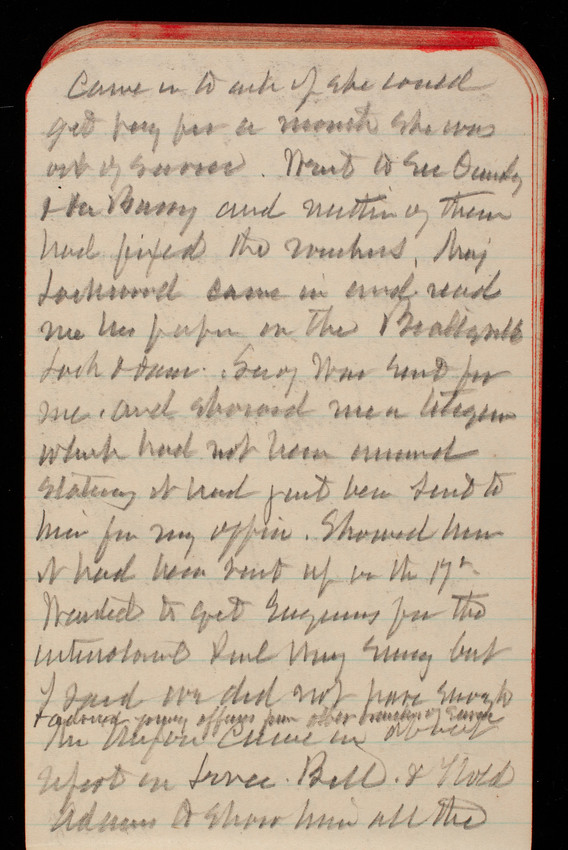 came in to ask if she could
get pay for a month she was
out of service. Went to see
& and neither of them
had fixed the vouchers. Maj
Lockwood came in and read
me his paper on the
Lock & dam. Secy War sent for
me. and showed me a telegram
which had not been answered
stating it had just been sent to
him from my office. Showed him
it had been sent up on the 17th
Wanted to get Engineers for the
but
I said we did not have enough
& advised young officers from other branches of Service
Mr came in about
report on Bill. & I told
Adams to show him all the